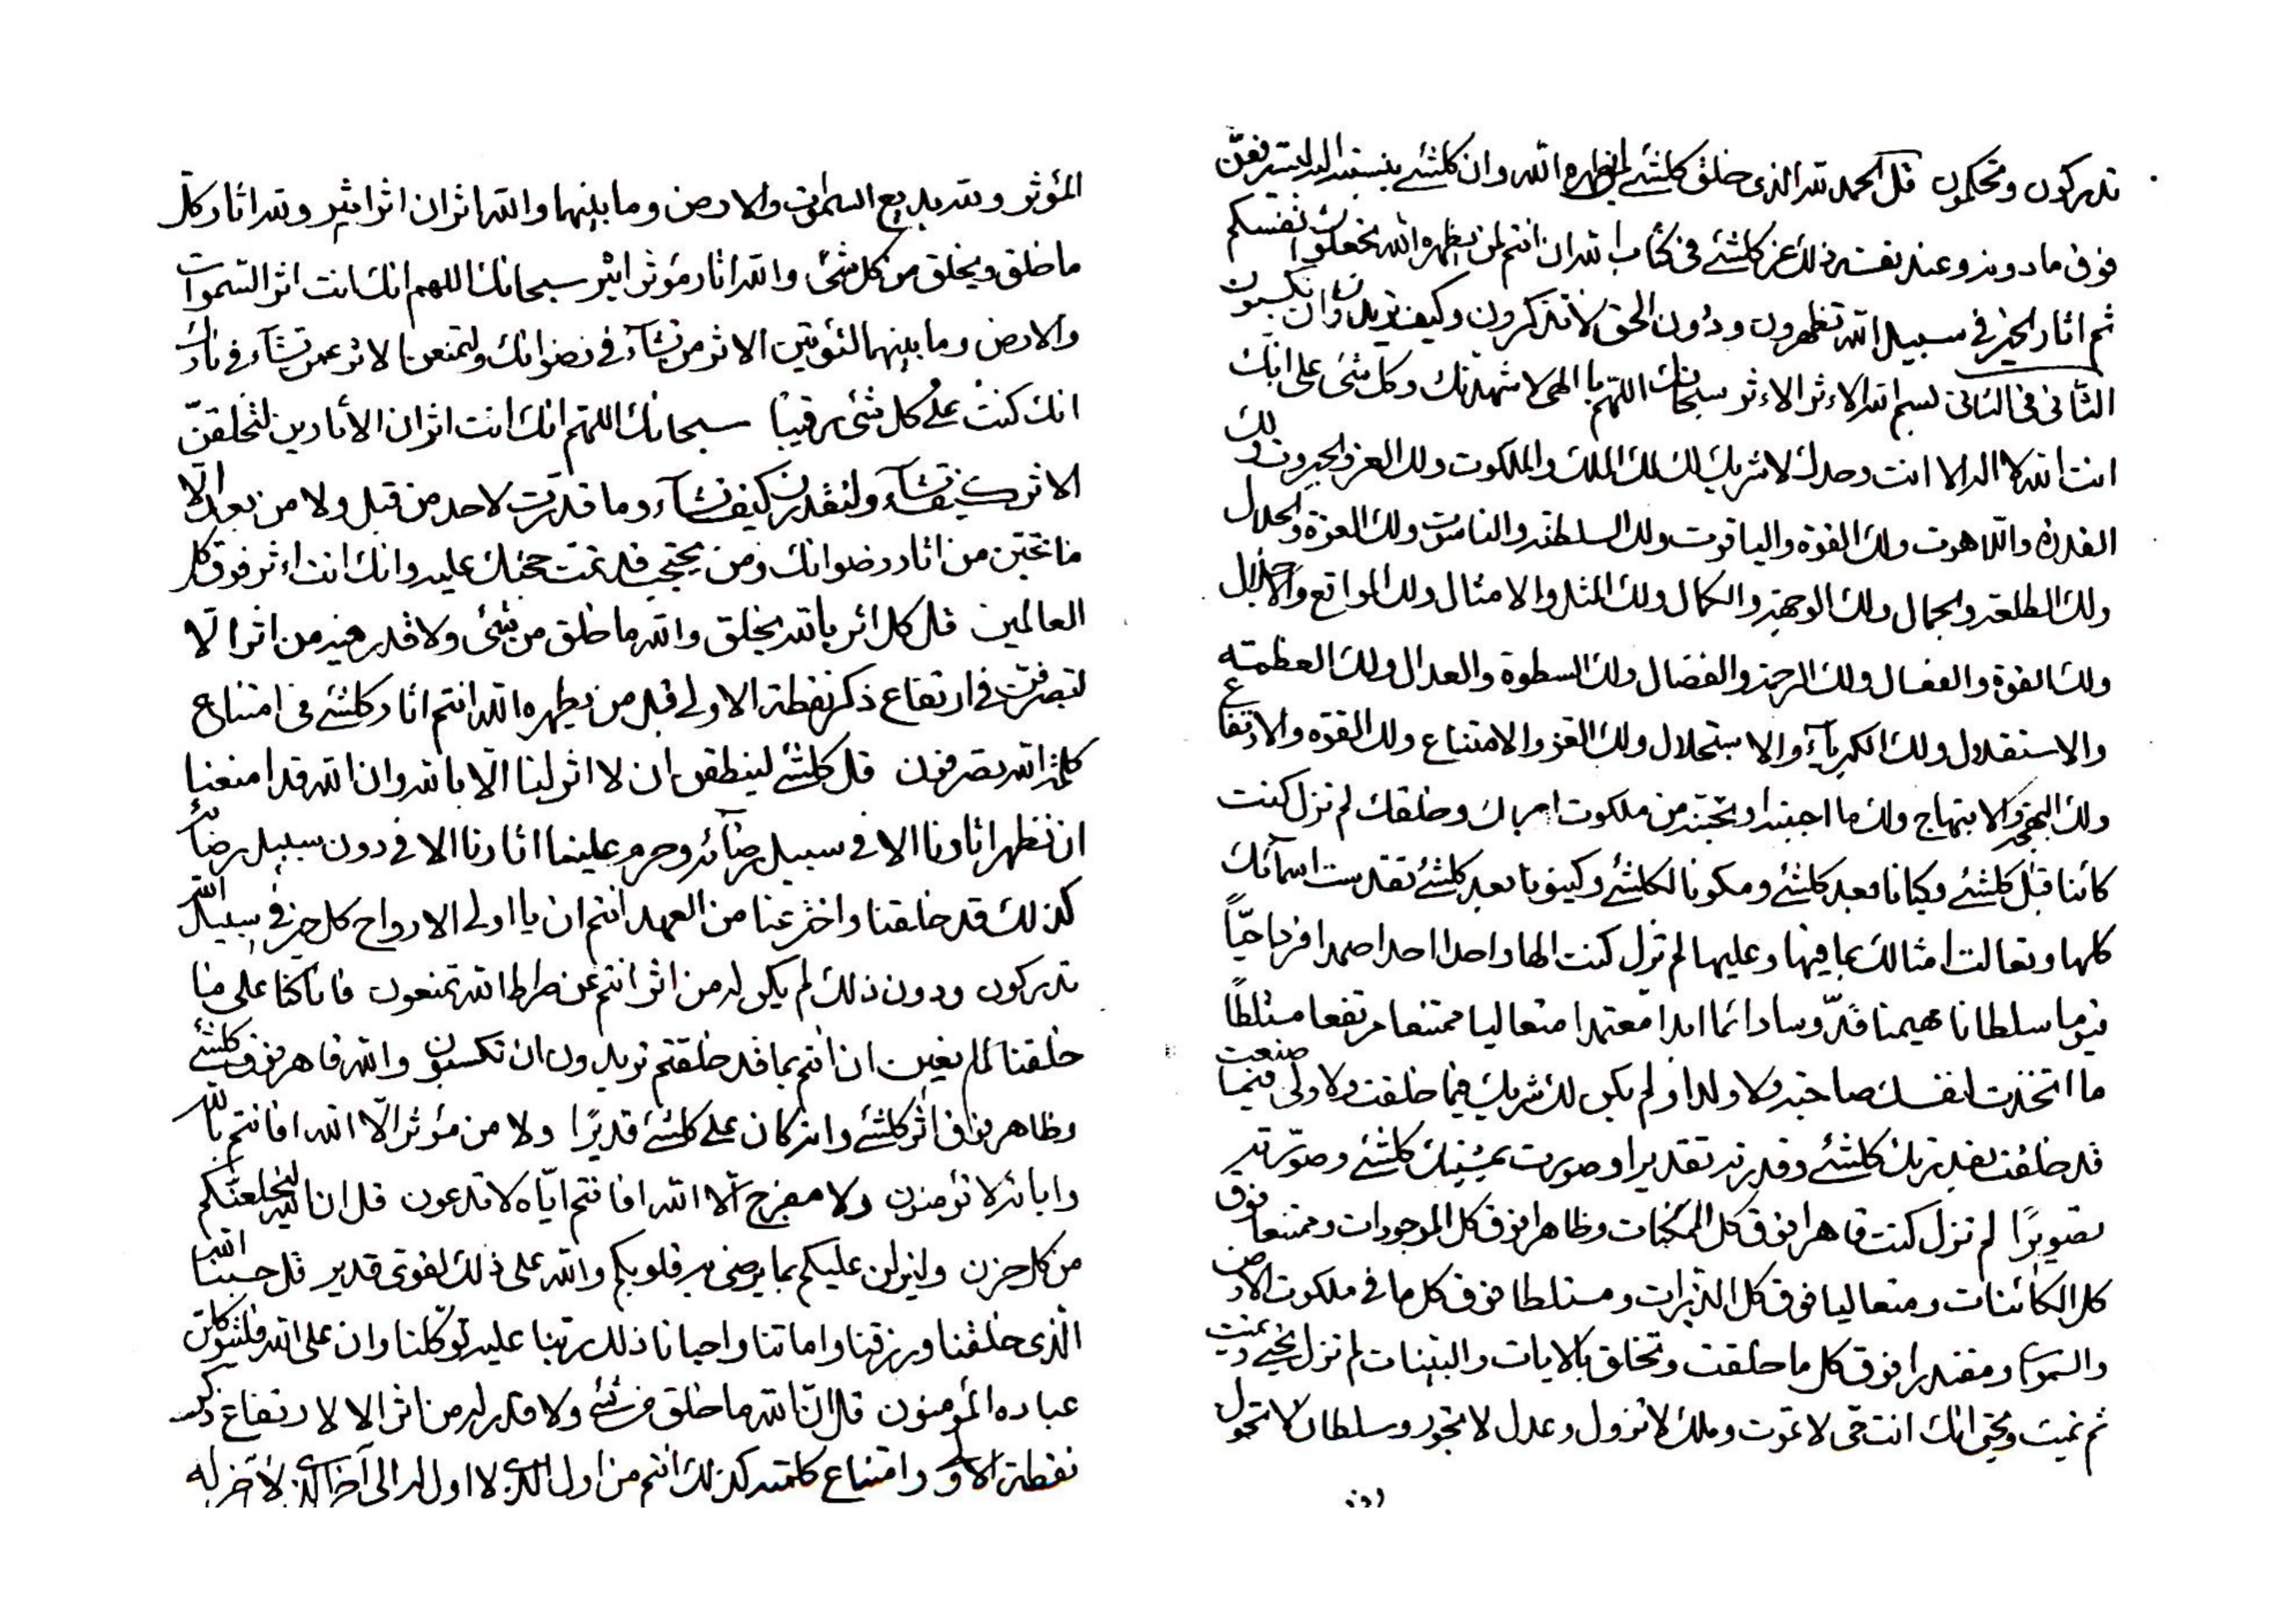 تدركون وتحكمون قل الحمد لله الذى خلق كلشئ لمن يظهره الله وان كلشئ بنسبته اليه ليترفعن
فوق ما دونه وعند نفسه ذلك عز كلشئ فى كتاب الله ان انتم لمن يظهره الله تجعلون انفسكم
ثم اثار الخير فى سبيل الله تظهرون ودون الحق لا تتذكرون وكيف تريدون ان تكسبون
الثانى فى الثانى بسم الله الاءثر الاءثر سبحانك اللهم يا الهى لاشهدنك وكل شئ على انك
انت الله لا اله الا انت وحدك لا شريك لك لك الملك والملكوت ولك العز والجبروت ولك
القدرة واللاهوت ولك القوة والياقوت ولك السلطنة والناسوت ولك العزة والجلال
ولك الطلعة والجمال ولك الوجهة والكمال ولك المثل والامثال ولك المواقع والاجلال
ولك القوة والفعال ولك الرحمة والفضال ولك السطوة والعدال ولك العظمته
والاستقلال ولك الكبرياء والاستجلال ولك العز والامتناع ولك القوة والارتفاع
ولك البهجة والابتهاج ولك ما احببته او تحبنه من ملكوت امرك وخلقك لم تزل كنت
كائنا قبل كلشئ وكيانا بعد كلشئ ومكونا لكلشئ وكينونا بعد كلشئ تقدست اسمائك
كلها وتعالت امثالك بما فيها وعليها لم تزل كنت الها واحدا احدا صمدا فردا حيّاً
قيوما سلطانا مهيمنا قدّوسا دائما ابدا معتمدا متعاليا ممتنعا مرتفعا متسلطا
ما اتخذت لنفسك صاحبة ولا ولدا ولم يكن لك شريك فيما خلقت ولا ولى فيما صنعت
قد خلقت بقدرتك كلشئ وقدرته تقديرا وصورت بمشيتك كلشئ وصوّرته
تصويرًا لم تزل كنت قاهرا فوق كل الممكنات وظاهرا فوق كل الموجودات وممتنعا فوق
كل الكائنات ومتعاليا فوق كل الذرات ومتسلطا فوق كل ما فى ملكوت الارض
والسموات ومقتدرا فوق كل ما خلقت وتخلق بالايات والبينات لم تزل تحيى وتميت
ثم تميت وتحيى انك انت حى لا تموت وملك لا تزول وعدل لا تجور وسلطان لا تحول
المؤثر ولله بديع السموات والارض وما بينهما والله اثران اثر اثير ولله اثار كل
ما خلق ويخلق من كل شئ والله اثار مؤثر اثير سبحانك اللهم انك انت اثر السموات
والارض وما بينهما لتؤتين الاثر من تشاء فى رضوانك ولتمنعن الاثر عمن تشاء فى نارك
انك كنت على كل شئ رقيبًا سبحانك اللهم انك انت اثران الأثارين لتخلقنّ
الاثر كيف تشاء ولتقدرن كيف تشاء وما قدرت لاحد من قبل ولا من بعد الا
ما تحبّن من اثار رضوانك ومن يحتجب قد تمت حجتك عليه وانك انت اءثر فوق كل
العالمين قل كل اثر بالله يخلق والله ما خلق من شئ ولا قدر فيه من اثر الا
لتصرفن فى ارتفاع ذكر نقطة الاولى قبل من يظهره الله انتم اثار كلشئ فى امتناع
كلمة الله تصرفون قل كلشئ لينطقن ان لا اثر لنا الا بالله وان الله قد امنعنا
ان نظهر اثارنا الا فى سبيل رضائه وحرم علينا اثارنا الا فى دون سبيل رضائه
كذلك قد خلقنا واخترعنا من العهد انتم ان يا اولى الارواح كل حزن فى سبيل الله
تدركون ودون ذلك لم يكن له من اثر انتم عن صراط الله تمنعون فانا كنا على ما
خلقنا لمن يغين ان انتم بما قد خلقتم تريدون ان تكسبون والله قاهر فوق كلشئ
وظاهر فوق اثر كلشئ وانه كان على كلشئ قديرًا ولا من مؤثر الّا الله افانتم بالله
واياته لا تؤمنون ولا مفرج الا الله افانتم ايّاه لا تدعون قل انا لنخلصنكم
من كل حزن ولينزلن عليكم بما يرضى به قلوبكم والله على ذلك لقوى قدير قل حسبنا الله
الذى خلقنا ورزقنا واماتنا واحيانا ذلك ربنا عليه توكلنا وان على الله فليتوكلن
عباده المؤمنون قل انّ الله ما خلق من شئ ولا قدر له من اثر الا لارتفاع ذكر
نقطة الاولى وامتناع كلمته كذلك انتم من اول الذى لا اول له الى آخر الذى لا آخر له